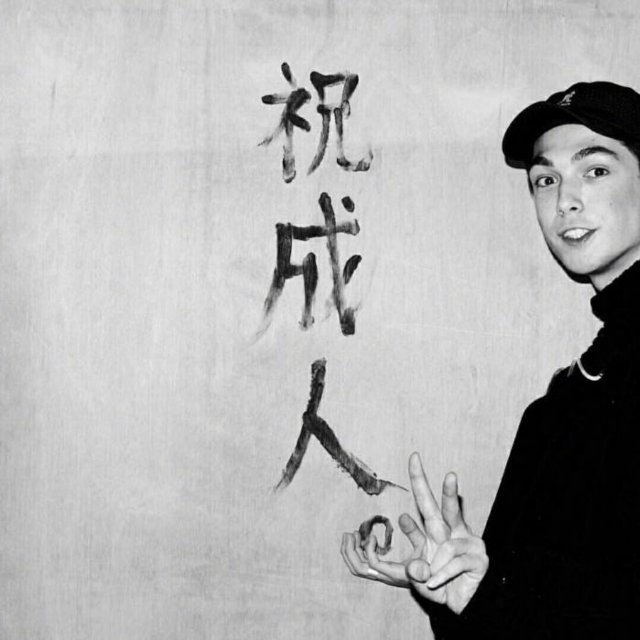 祝成人。